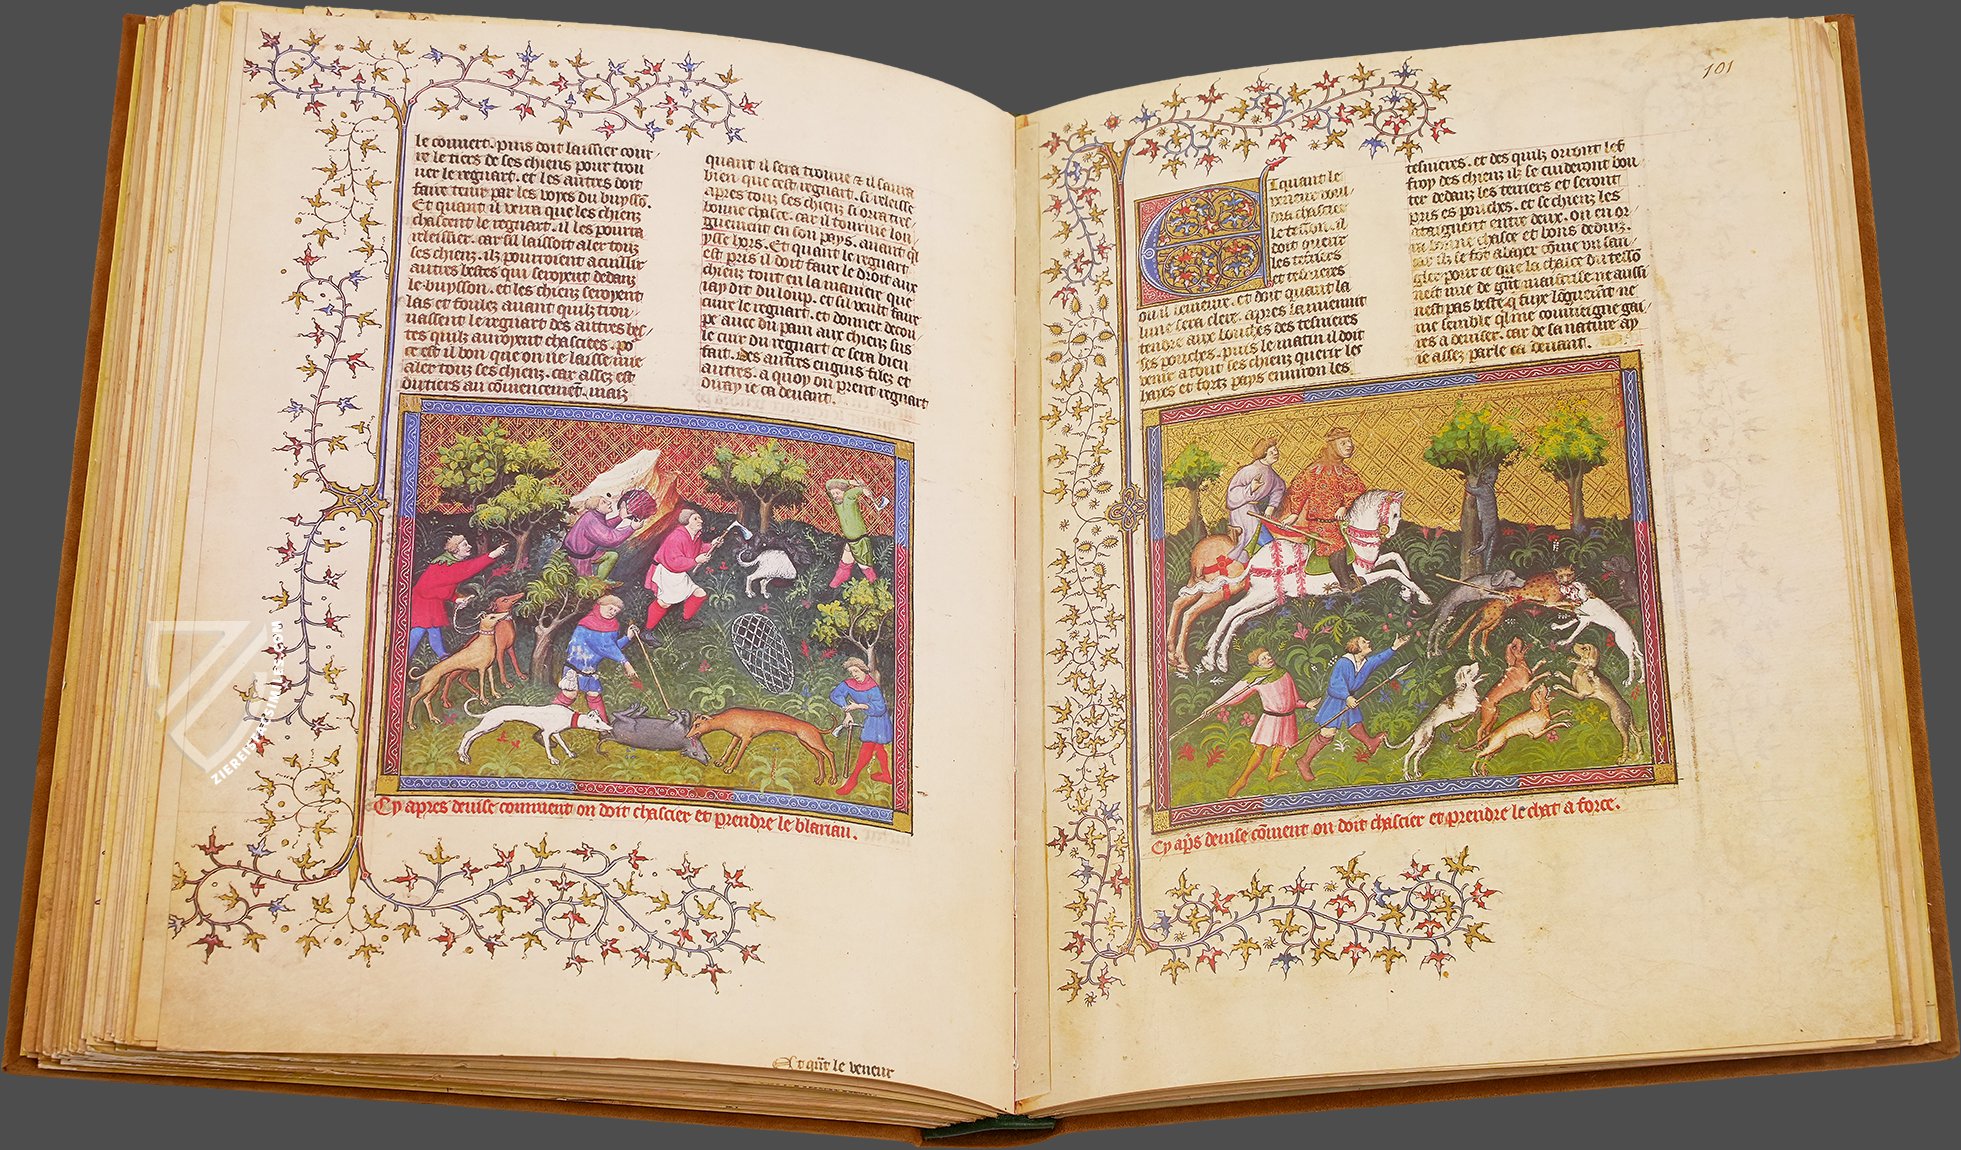 le couuert. puis doit laissier cour
re le tiers de ses chiens pour trou
uer le regnart. et les autres doit
faire tenir par les voyes du buysso.
Et quant il verra que les chiens
chascent le regnart. il les pourra
releissier. car sil laissoit aler touz
ses chiens. ilz pourroient acuillir
autres bestes qui seroyent dedanz
le buysson. et les chiens seroyent
las et foulez auant quilz trou
uassent le regnart des autres bes
tes quilz auroyent chasciees. po
ce est il bon que on ne laisse mie
aler touz ses chiens. car assez est
du tiers au cōmencement. maiz
quant il sera trouue et il saura
bien que cest regnart. si releisse
apres touz ses chiens si ora tres
bonne chasce. car il tournie lon
guement en son pays. auant qil
ysse hors. Et quant le regnart
est pris il doit faire le droit aux
chiens tout en la maniere que
iay dit du loup. et sil veult faire
cuire le regnart. et donner decou
pe auec du pain aux chiens sus
le cuir du regnart ce sera bien
fait. Des autres engins filez et
autres. a quoy on prent regnart
diray ie ca deuant.
Cy apres deuise comment on doit chascier et prendre le blariau.
Et qūt le veneur
101
Et quant le
veneur voul
dra chascier
le tesson. il
doit querir
les terriers
et tesnieres
ou il demeure. et doit quant la
lune sera clere. apres la mienuit
tendre aux bouches des tesnieres
ses pouches. puis le matin il doit
venir a tout ses chiens querir les
hayes et fortz pays enuiron les
tesnieres. et des quilz orront lef
froy des chiens ilz se cuideront bou
ter dedanz les terriers et seront
pris es pouches. et se chiens les
ataignent entre deux. on en or
ra bonne chasce et bons deduiz.
car ilz se fōt abayer cōme un san
gler pour ce que la chasce du tessō
nest mie de grāt maistrise ne aussi
nest pas beste q fuye lōguemēt ne
me semble ql me conuieigne gai
res a deuiser. car de sa nature ay
ie assez parle ca deuant.
Cy ap̄s deuise cōment on doit chascier et prendre le chat a force.
ZIEREIS FACSIMILES.COM